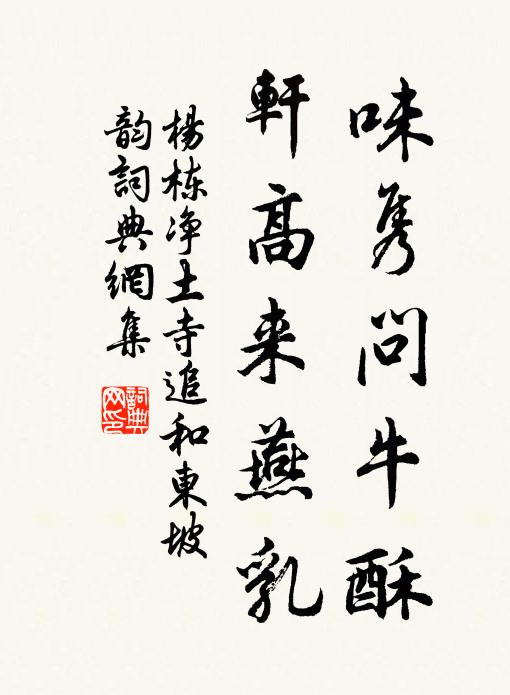 味隽問牛酥
軒高来燕乳
楊栋净土寺追和東坡
韵詞典網集
詞典
网印